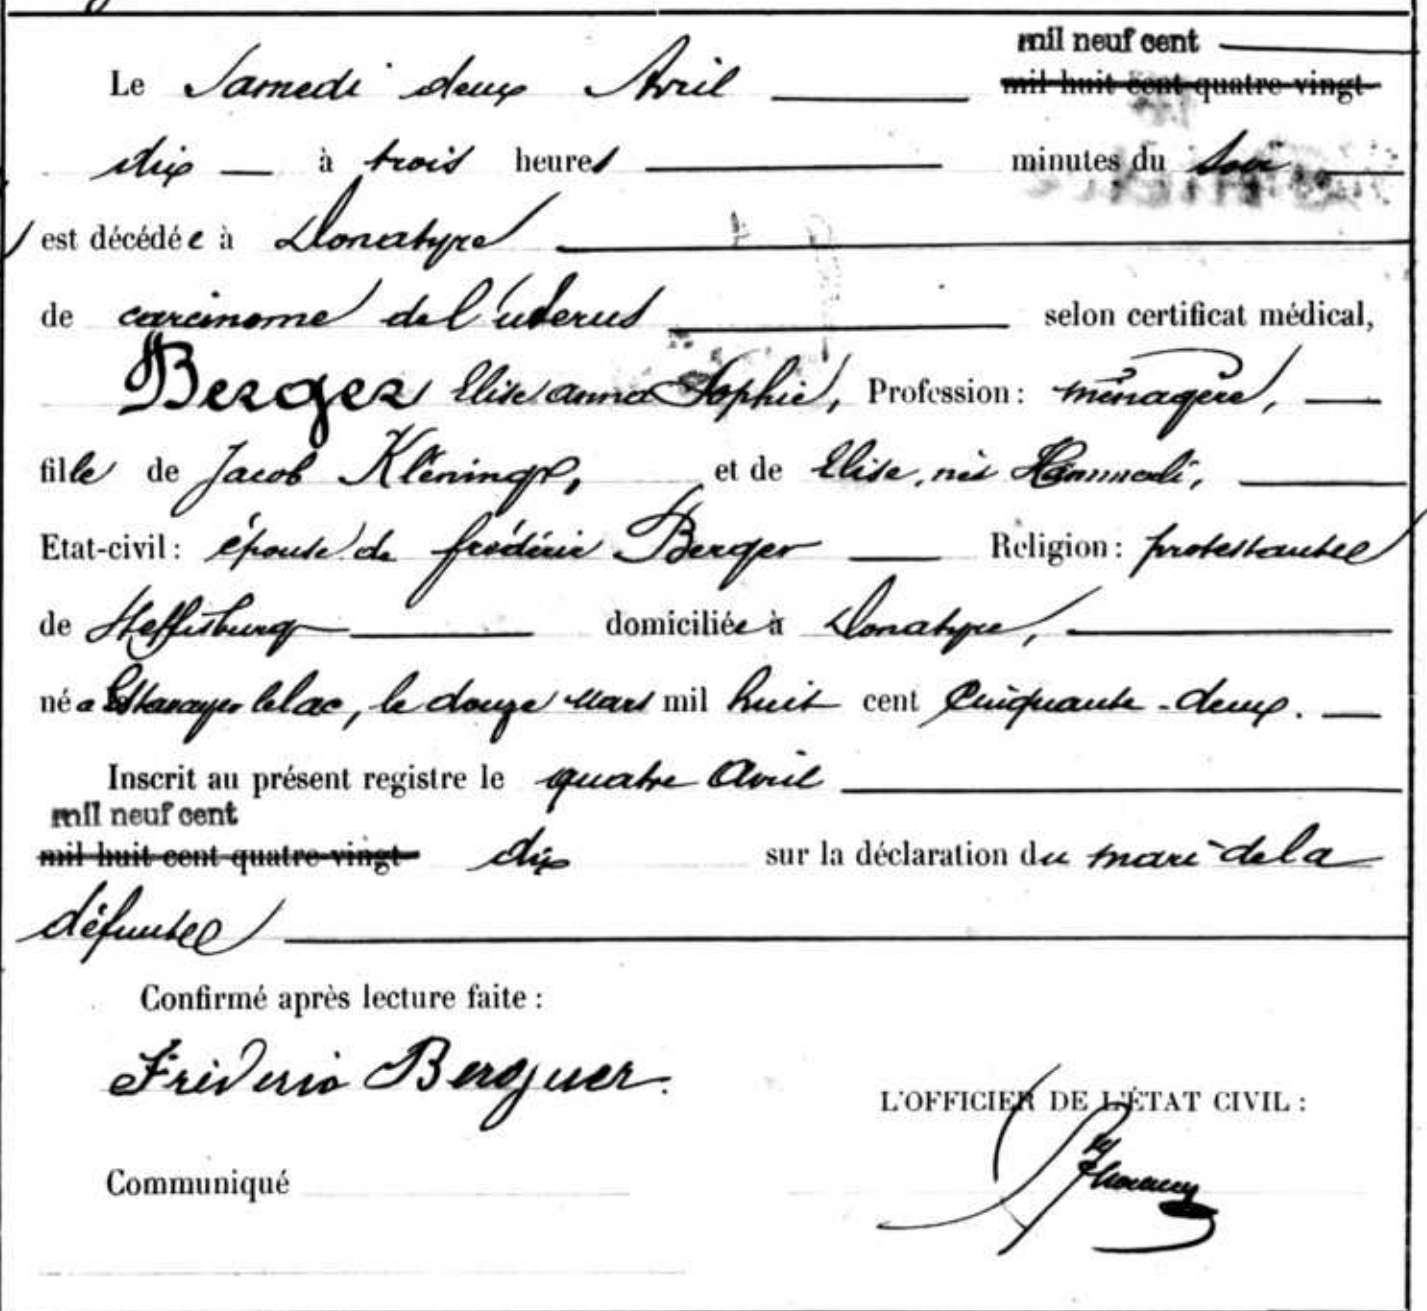 mil neuf cent
Le Samedi deux Avril mil huit cent quatre-vingt-
dix à trois heures minutes du soir
est décédée à Donatyre
de carcinome de l'uterus selon certificat médical,
Berger Elise Anna Sophie, Profession: ménagère,
fille de Jacob et de Elise, née
Etat-civil: épouse de frédéric Berger Religion: protestante
de Steffisburg domiciliée à Donatyre,
née Estavayer le lac, le douze Mars mil huit cent Cinquante-deux.
Inscrit au présent registre le quatre Avril
mil neuf cent
mil huit cent quatre-vingt- dix sur la déclaration du mari de la
défunte
Confirmé après lecture faite:
Fréderic Berguer.
L'OFFICIER DE L'ÉTAT CIVIL:
Communiqué